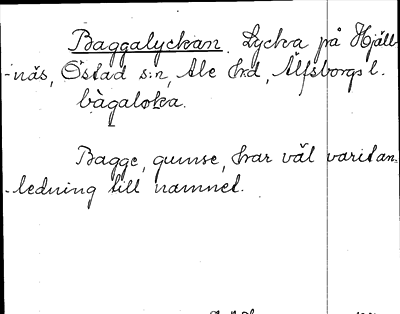 Baggalyckan. Lycka på Hjäll-
-näs, Östad s:n, Ale hd, Älfsborgs l.
bàgaløka.
Bagge, gumse, har väl varit an-
-ledning till namnet.